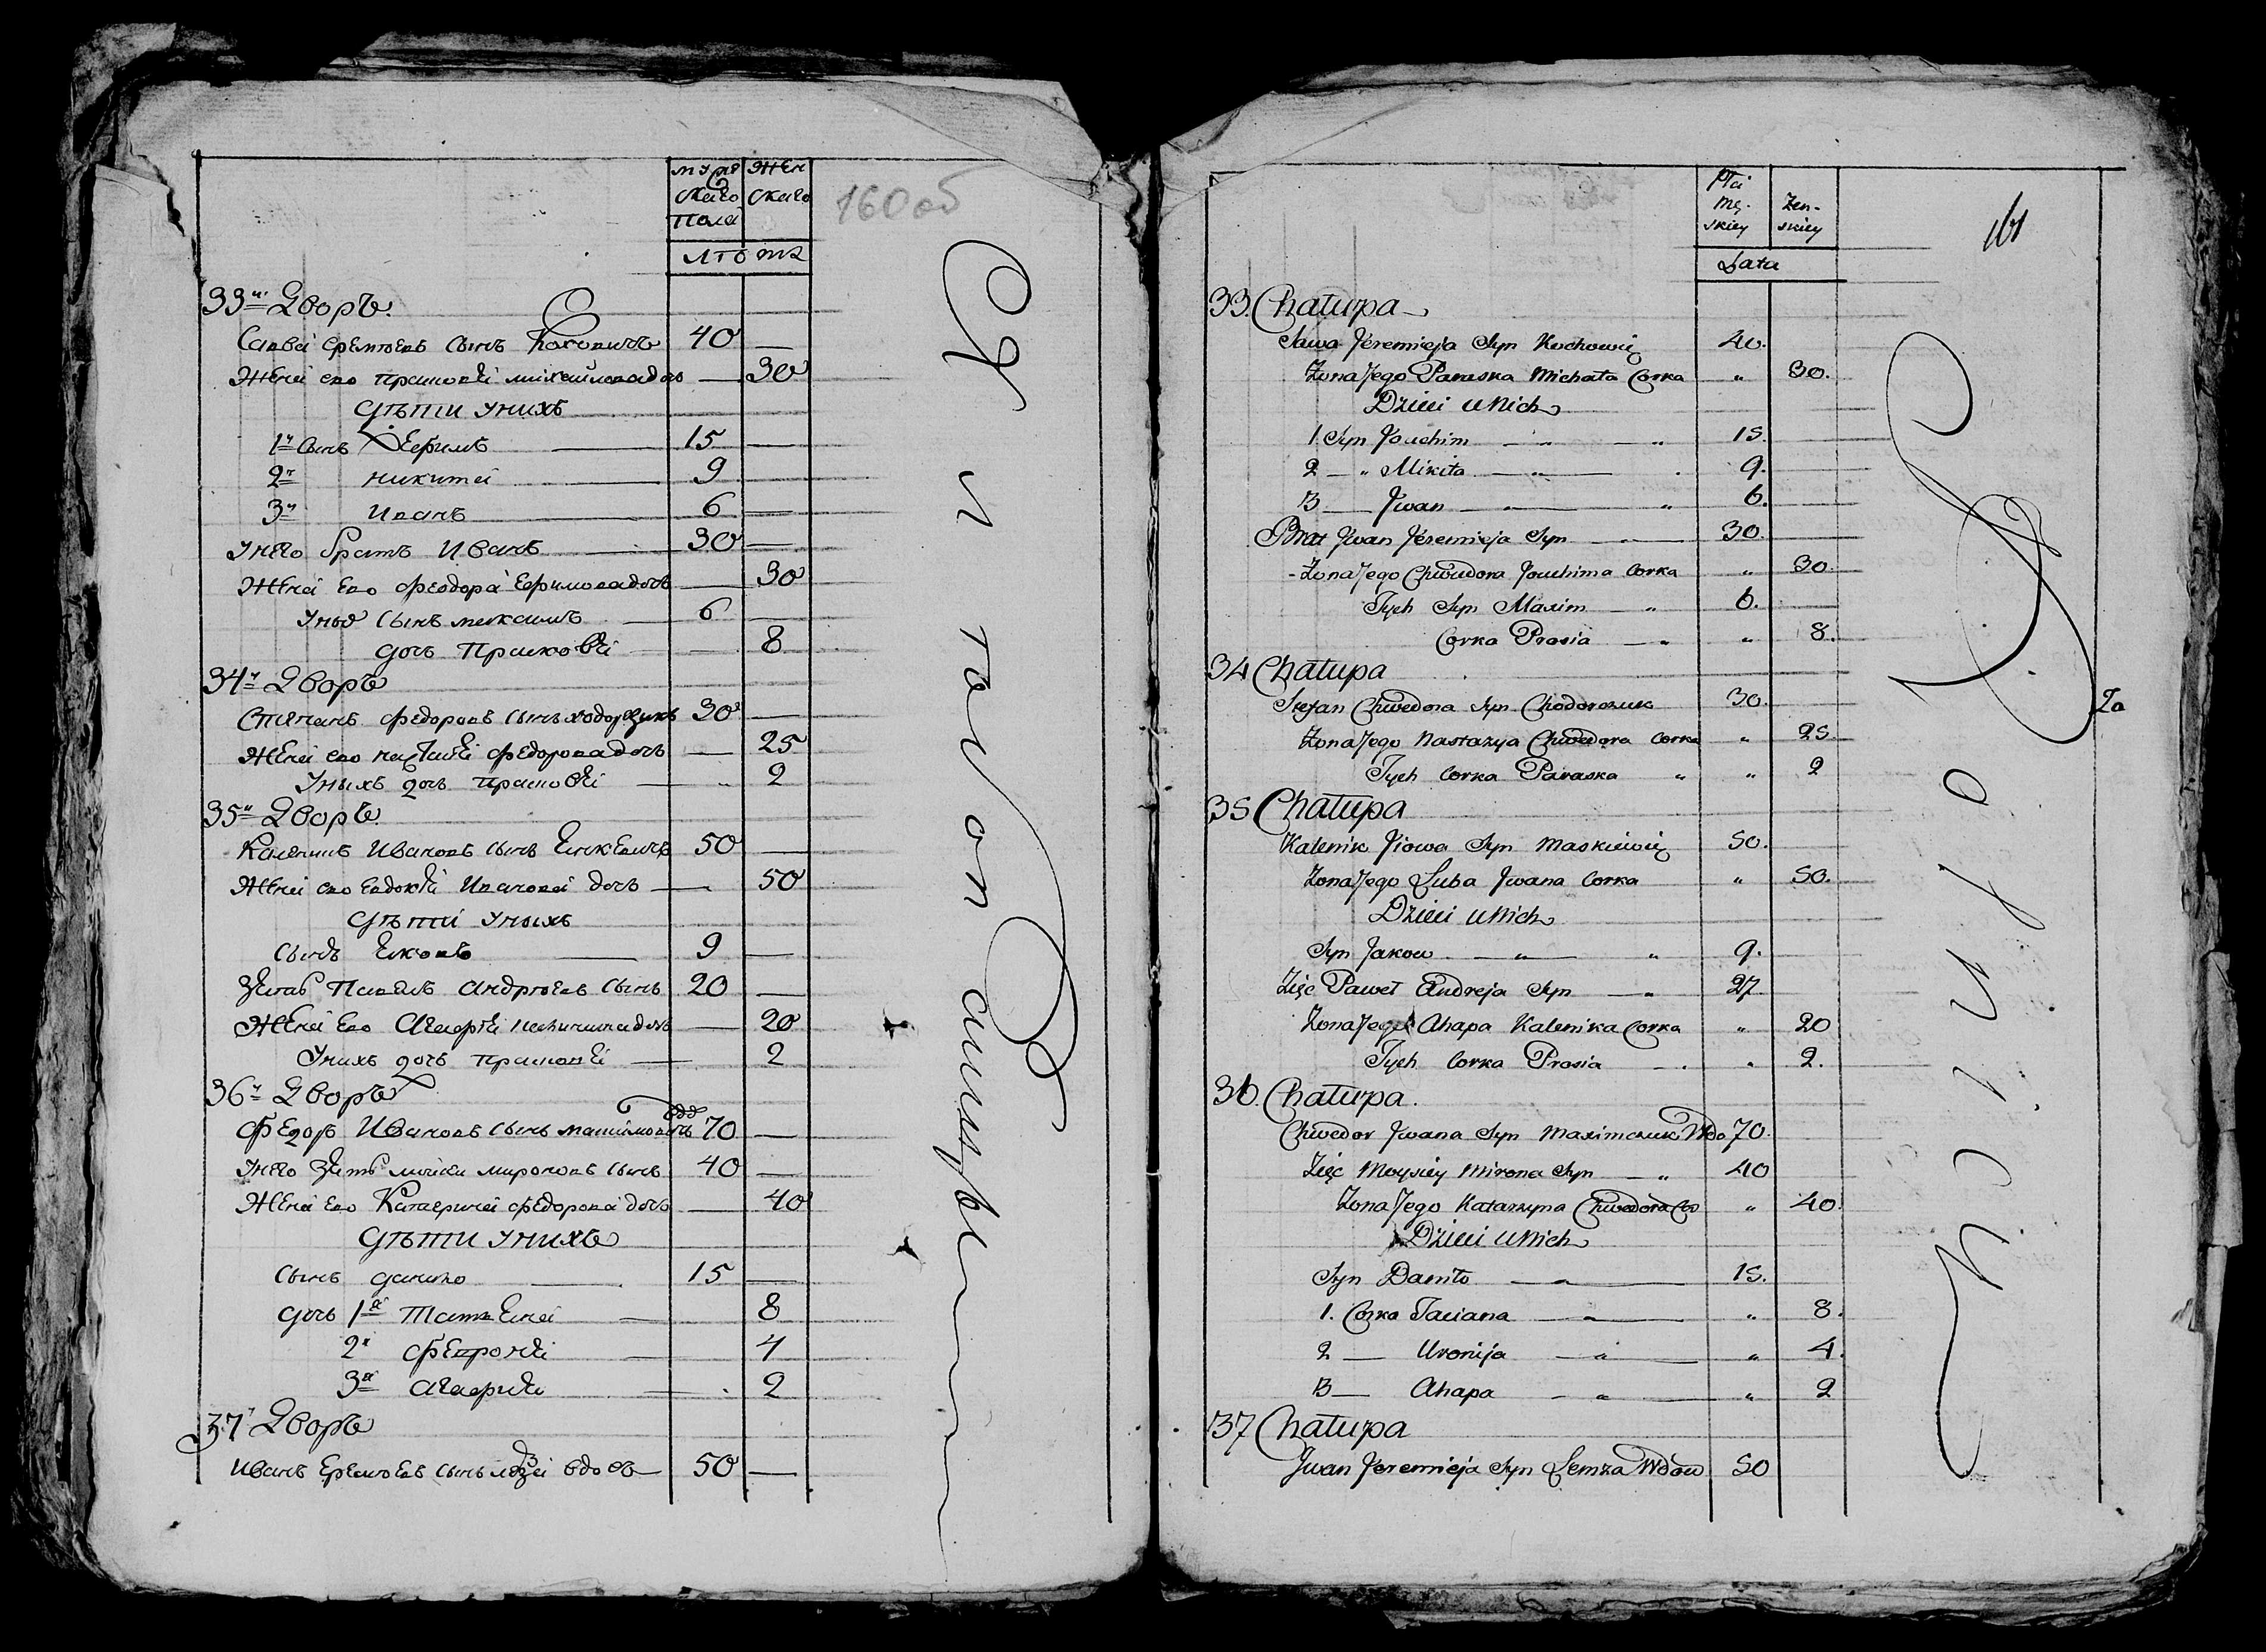 мужескаго пола
женскаго
160об
лѣта
33й Дворъ
Савва Еремѣевъ сынъ Коховичъ 40 —
Жена ево Прасковья Михайлова дочь — 30
Дѣти у нихъ
1й сынъ Ефимъ 15 —
2й Никита 9
3й Иванъ 6 —
У него братъ Иванъ 30 —
Жена ево Феодора Ефимова дочь — 30
сынъ Максимъ 6 —
дочь Прасковья — 8
34й Дворъ
Степанъ Федоровъ сынъ Ходорчукъ 30 —
Жена ево Настасья Федорова дочь — 25
У ныхъ дочь Прасковья — 2
35й Дворъ
Каленикъ Ивановъ сынъ 50 —
Жена ево Евдокия Иванова дочь — 50
Дѣти у ныхъ
сынъ Яковъ 9 —
Зять Павелъ Андрѣевъ сынъ 20 —
Жена ево Агафья дочь — 20
У нихъ дочь Прасковья — 2
36й Дворъ
Федоръ Ивановъ сынъ вдо 70 —
У него зять Мойсей Мироновъ сынъ 40 —
Жена ево Катерина Федорова дочь — 40
Дѣти у нихъ
сынъ Данило 15 —
дочь 1я Татьяна — 8
2я Февронья — 4
3я Агафья — 2
37й Дворъ
Иванъ Еремѣевъ сынъ вдовъ 50 —
Płci Mę-skiey
Żen-skiey
161
Lata
33. Chałupa
Sawa Jeremieja Syn Kochowicz 40.
Żona Jego Paraska Michała Corka " 30.
Dzieci u Nich
1. Syn Jouchim " " 15.
2 " Mikita " 9.
3 Jwan " " 6.
Brat Jwan Jeremieja Syn 30.
Żona Jego Chwedora Jouchima Corka " 30.
Tych Syn Maxim " 6.
Corka Prosia " " 8.
34 Chałupa
Stefan Chwedora Syn Chodorczuk 30.
Żona Jego Nastazya Chwedora Corka " 25.
Tych Corka Paraska " " 2
35 Chałupa
Kalenik Jiowa Syn Maskiewicz 50.
Żona Jego Luba Jwana Corka " 50.
Dzieci u Nich
Syn Jakow " " 9.
Zięc Paweł Andreja Syn " 27.
Żona Jego Ahapa Kalenika Corka " 20
Tych Corka Prosia " 2.
36. Chałupa.
Chwedor Jwana Syn Maximczuk Wdo 70.
Zięc Moysiey Mirona Syn " 40
Żona Jego Katarzyna Chwedora Cor " 40.
Dzieci u Nich
Syn Daniło " 15.
1. Corka Taciana " " 8.
2 Uronija " " 4.
3 Ahapa " " 2
37 Chałupa
Jwan Jeremieja Syn Lemza Wdow 50